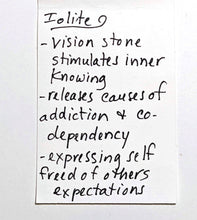 Iolite
- Vision stone
stimulates inner
Knowing
- releases causes of
addiction & co-
dependency
- expressing self
freed of others
expectations